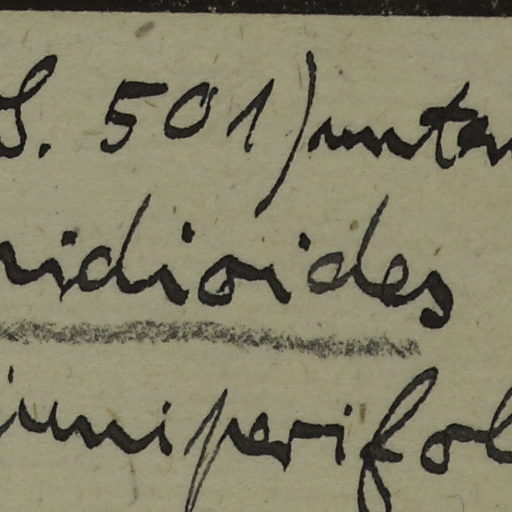 S. 501) unter
ridioides
juniperifol